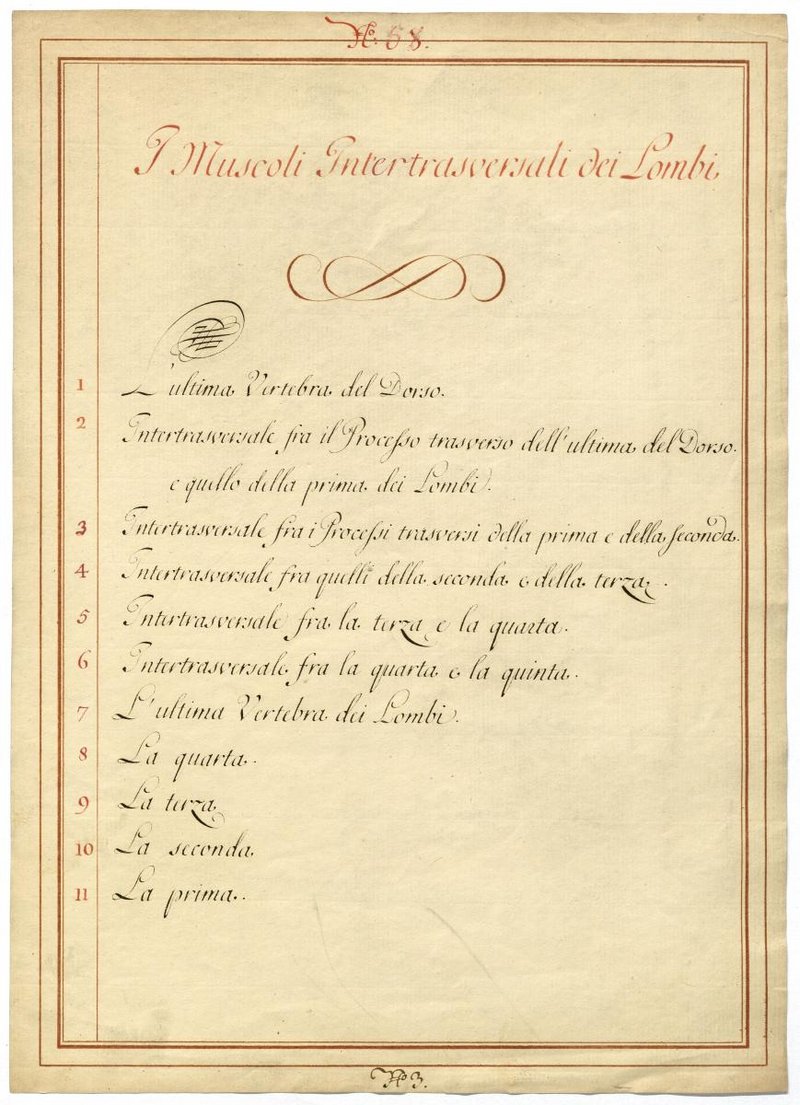 No: 58.
I Muscoli Intertrasversali dei Lombi,
1 L'ultima Vertebra del Dorso.
2 Intertrasversale fra il Processo trasverso dell'ultima del Dorso.
e quello della prima dei Lombi.
3 Intertrasversale fra i Processi trasversi della prima e della seconda.
4 Intertrasversale fra quelli della seconda e della terza.
5 Intertrasversale fra la terza e la quarta.
6 Intertrasversale fra la quarta e la quinta.
7 L'ultima Vertebra dei Lombi.
8 La quarta.
9 La terza
10 La seconda.
11 La prima.
No 3.